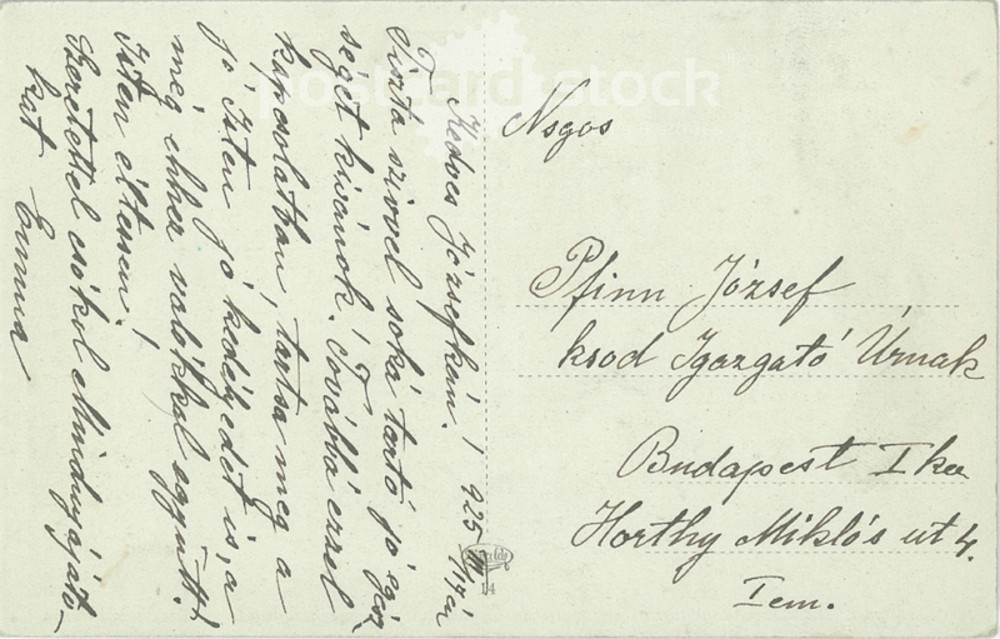 Kedves Józsefkém! 925 III/17én
Tiszta szivvel soká tartó jó egész
ségét kivánok! Továbbá ezzel
kapcsolatban, tartsa meg a
jó Isten jó kedélyedet is, a
még ehhez valókkal együtt!
Isten éltessen!
Szeretettel csókol Mindnyájáto-
kat Emma
Nsgos
Pfinn József
ksod Igazgató Úrnak
Budapest I ker
Horthy Miklós ut 4.
I em.
14
postcardstock